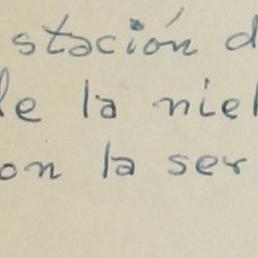 stación d
le la niel
on la ser